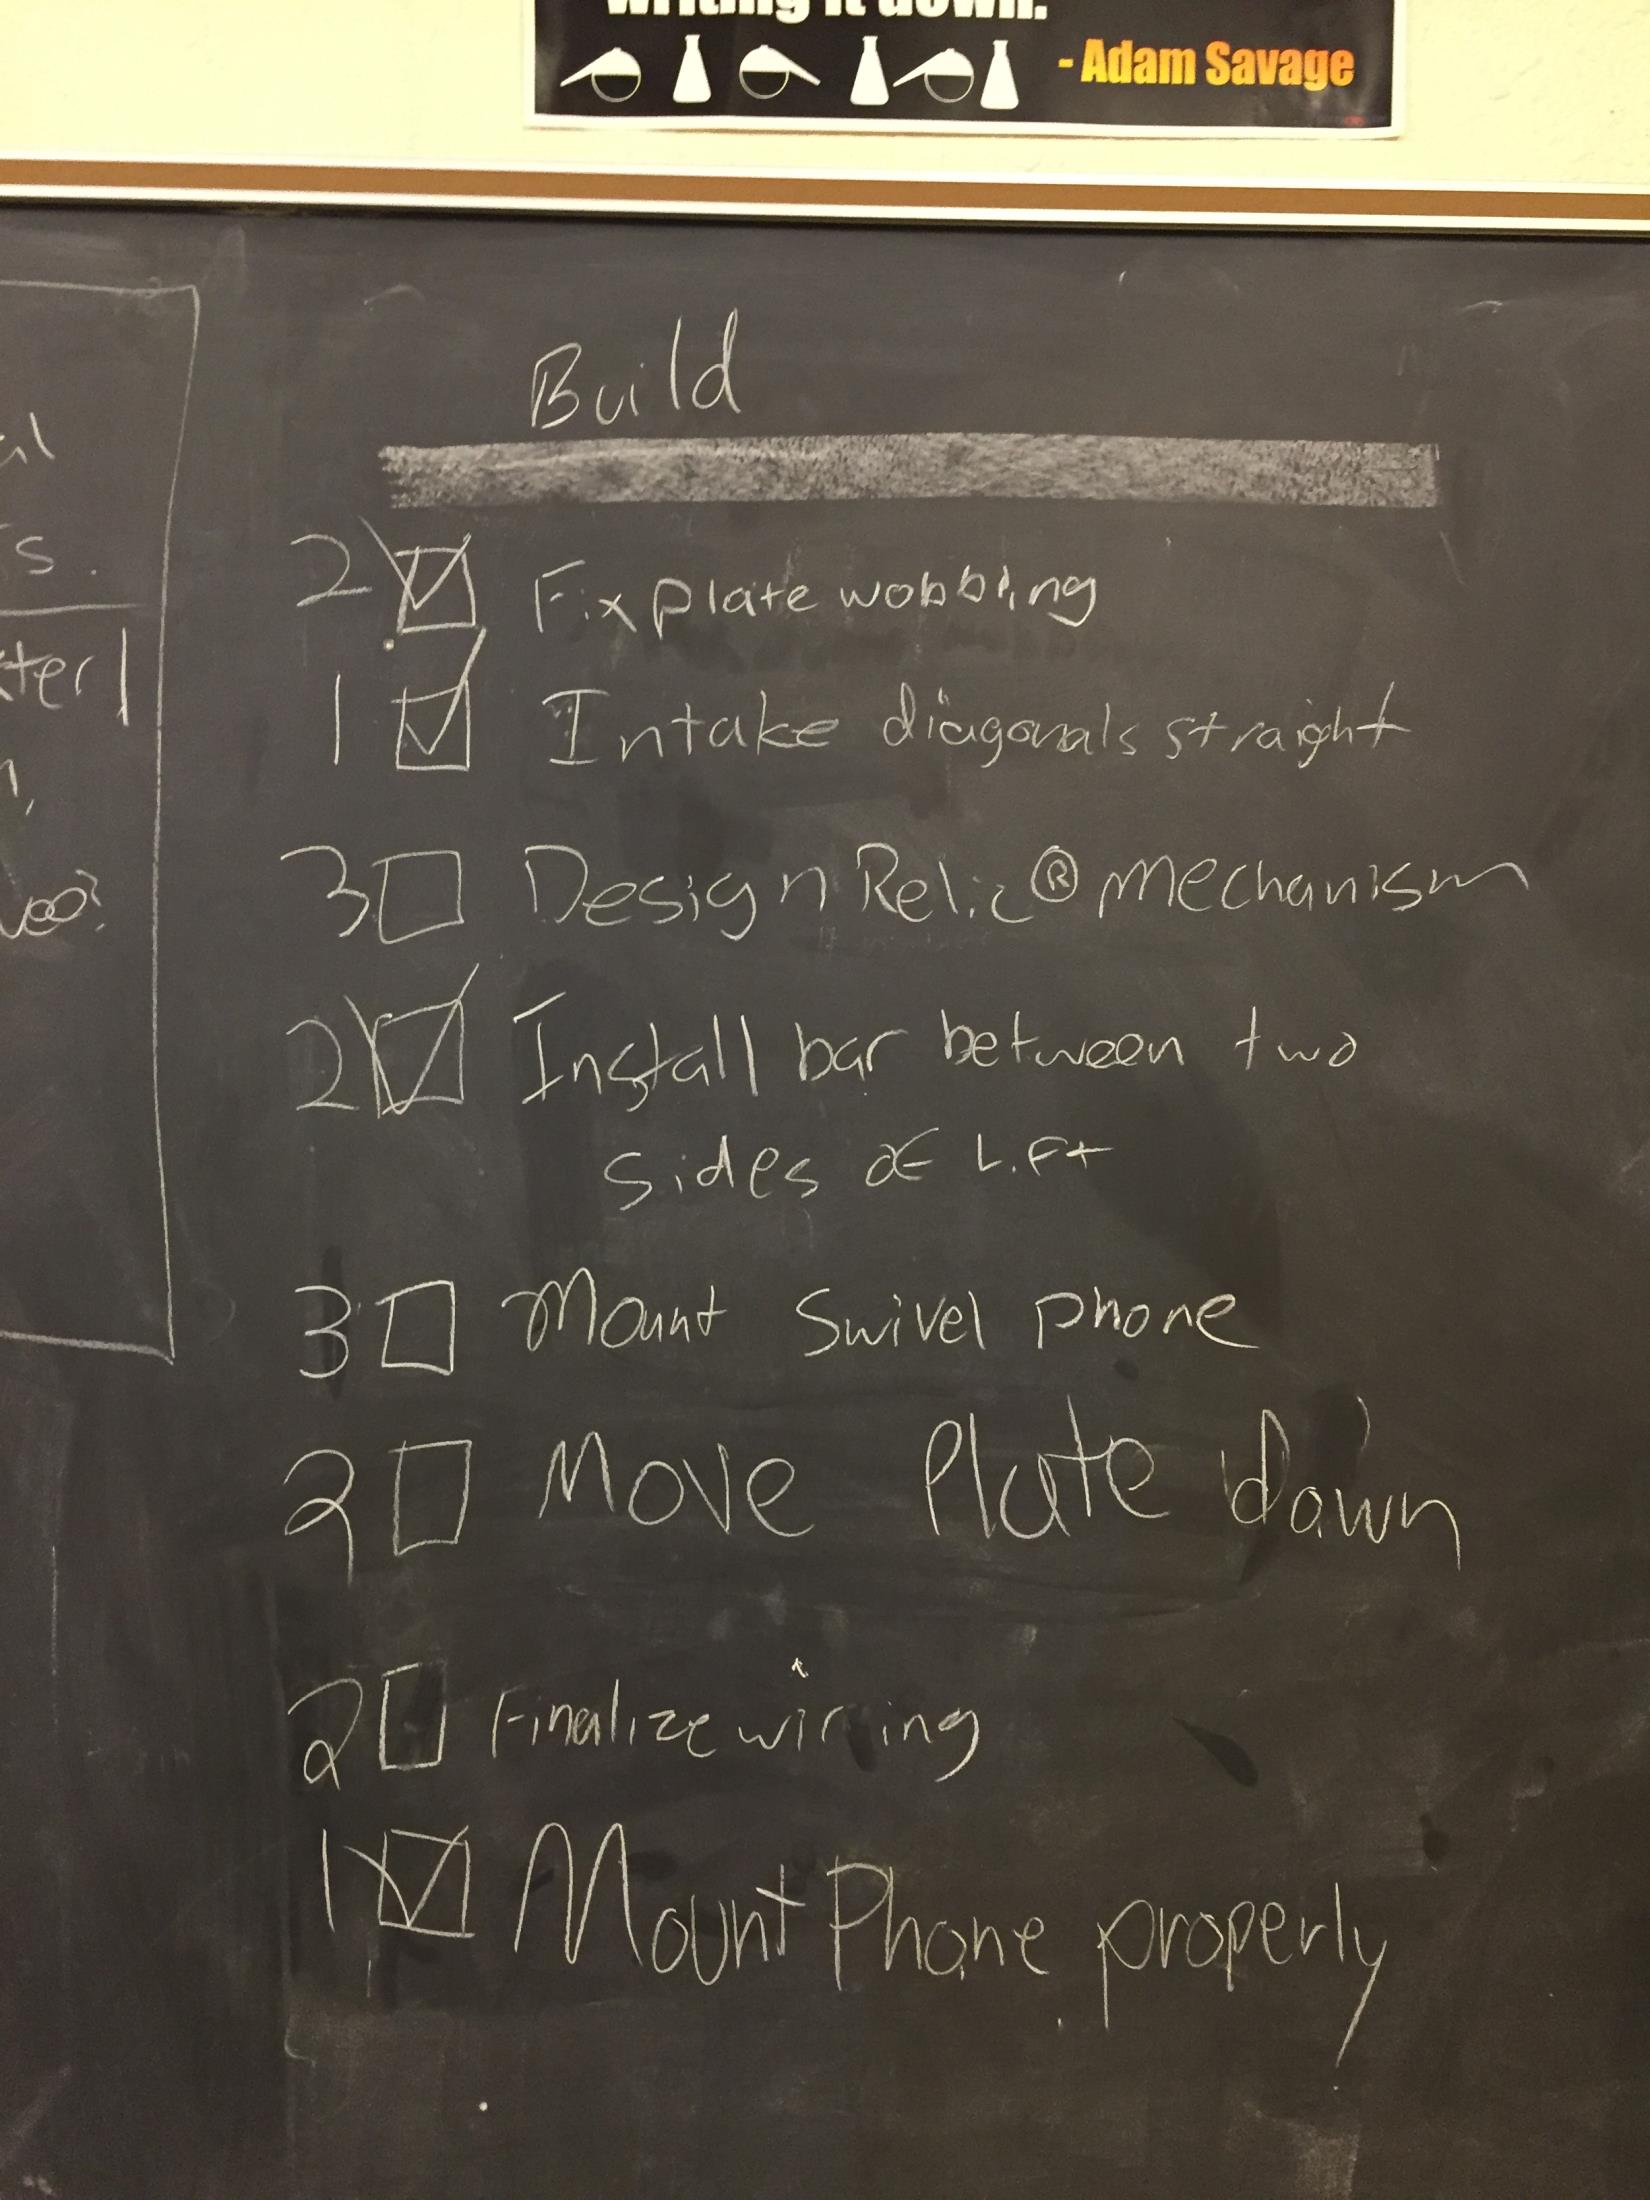 writing it down.
- Adam Savage
Build
2 Fix plate wobbling
1 Intake diagonals straight
3 Design Relic® mechanism
2 Install bar between two
sides of Lift
3 Mount Swivel phone
2 Move Plate down
2 Finalize wirring
1 Mount Phone properly
s.